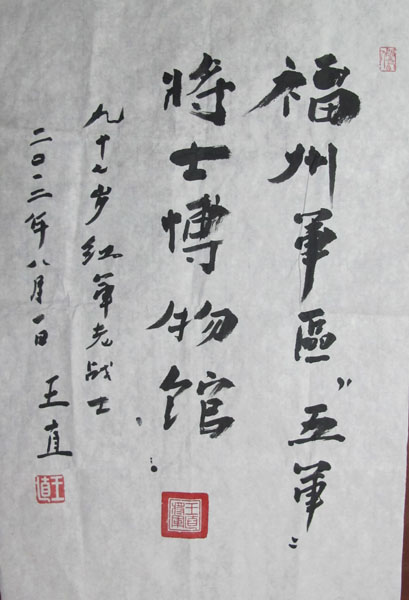 福州軍區"五軍"
將士博物館
九十七岁红軍老战士
二〇一二年八月一日
王直
王直